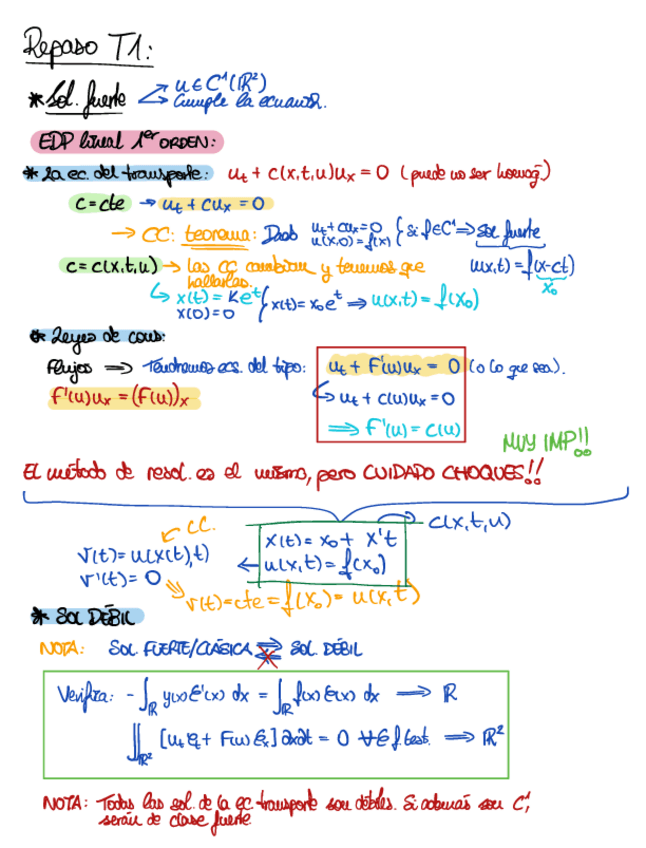 Repaso T1:
* Sol. fuerte → u ∈ C¹(ℝ²)
→ Cumple la ecuación.
EDP lineal 1er ORDEN:
* La ec. del transporte: u_t + c(x,t,u)u_x = 0 (puede no ser homog.)
c = cte → u_t + cu_x = 0
→ CC: teorema: Dado { u_t + cu_x = 0
u(x,0) = f(x) } si f∈C¹ ⇒ sol fuerte
u(x,t) = f(x-ct)
x₀
c = c(x,t,u) → las CC cambian y tenemos que
hallarlas.
↳ x(t) = Ke^t
x(0) = 0 { x(t) = x₀e^t ⇒ u(x,t) = f(x₀)
* Leyes de cons:
Flujos ⇒ Tendremos ecs. del tipo: u_t + F'(u)u_x = 0 (o lo que sea).
F'(u)u_x = (F(u))_x
↳ u_t + c(u)u_x = 0
⇒ F'(u) = c(u)
MUY IMP!!
El método de resol. es el mismo, pero CUIDADO CHOQUES!!
c(x,t,u)
CC.
x(t) = x₀ + x't
v(t) = u(x(t),t) ← u(x,t) = f(x₀)
v'(t) = 0
⇒ v(t) = cte = f(x₀) = u(x,t)
* SOL DÉBIL
NOTA: SOL. FUERTE/CLÁSICA ⇒ SOL. DÉBIL
Verifica: -∫_ℝ y(x)ϵ'(x) dx = ∫_ℝ f(x)ϵ(x) dx → ℝ
∬_ℝ² [uϵ_t + F(u)ϵ_x] dxdt = 0 ∀ϵ f. test. → ℝ²
NOTA: Todas las sol. de la ec. transporte son débiles. Si además son C¹,
serán de clase fuerte.